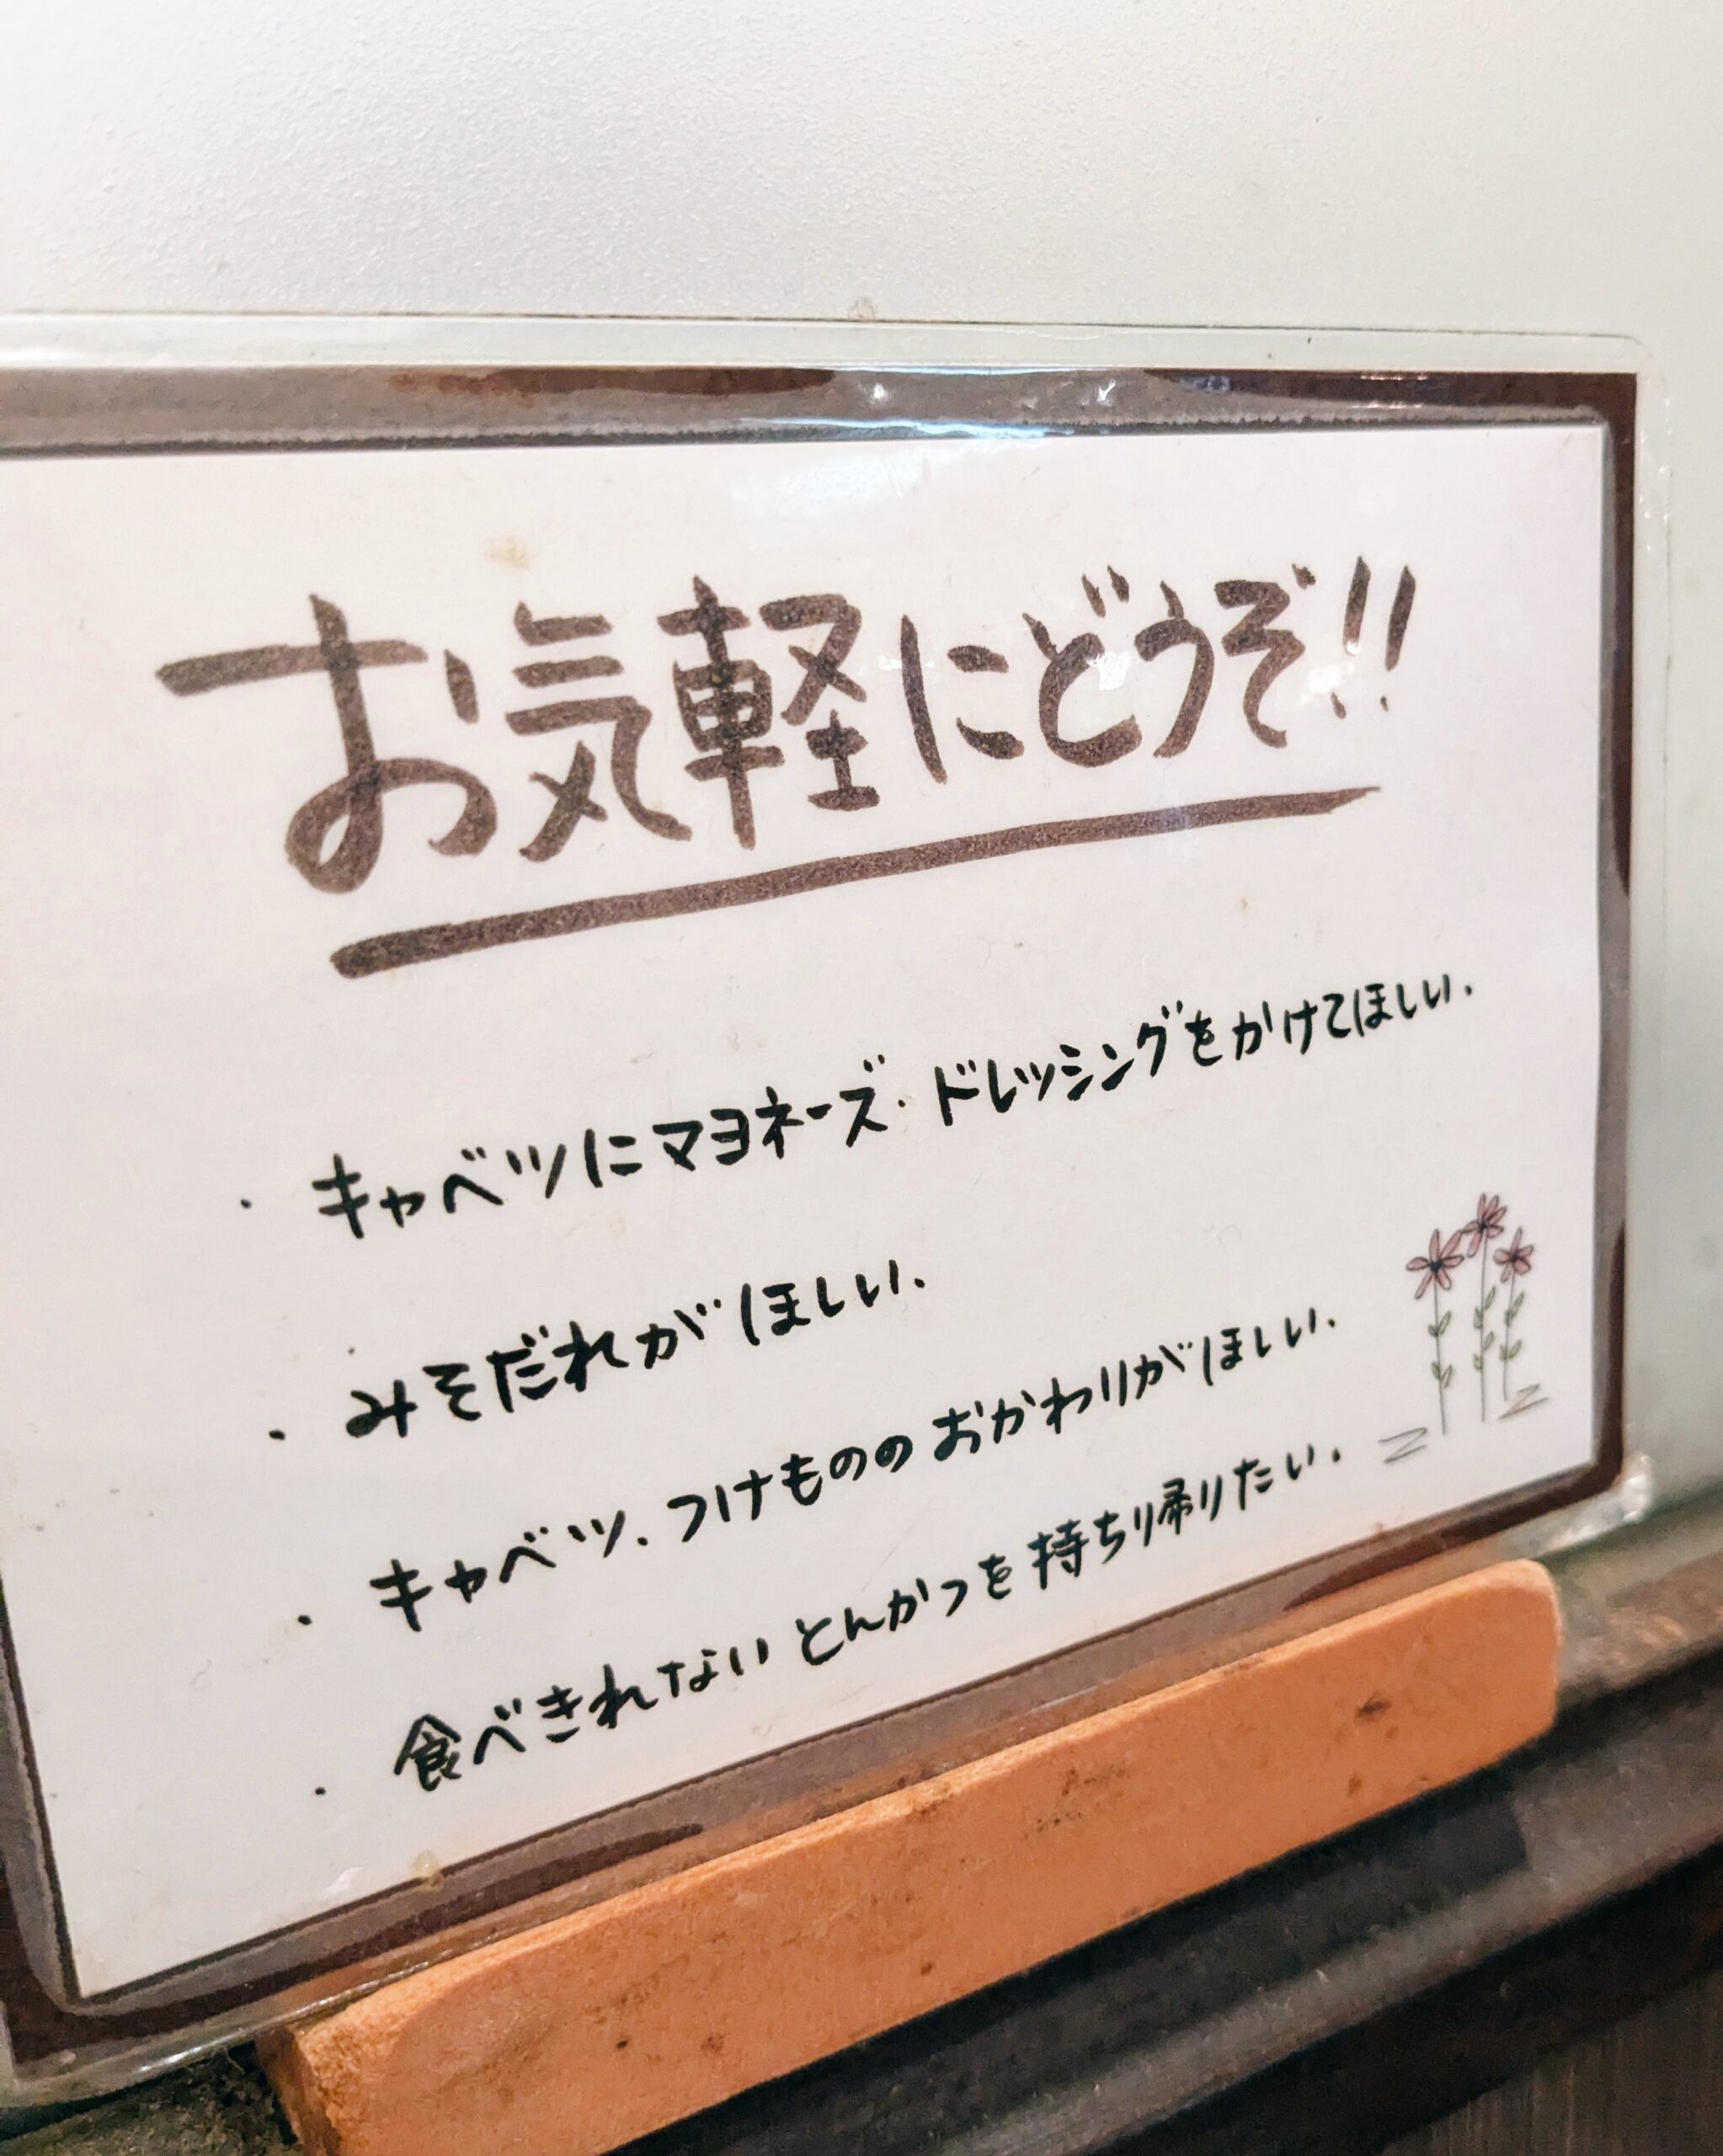 お気軽にどうぞ!!
・キャベツにマヨネーズ・ドレッシングをかけてほしい.
・みそだれがほしい.
・キャベツ.つけもののおかわりがほしい.
・食べきれないとんかつを持ちり帰りたい.